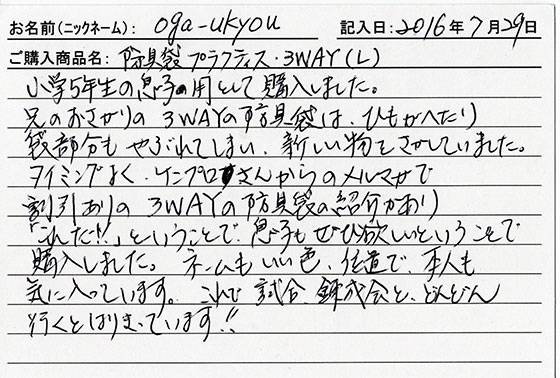 お名前(ニックネーム): oga-ukyou 記入日: 2016年7月29日
ご購入商品名: 防具袋プラクティス・3WAY(L)
小学5年生の息子の用として購入しました。
兄のおさがりの3WAYの防具袋は、ひもがへたり
袋部分もやぶれてしまい、新しい物をさがしていました。
タイミングよく、ケンプロさんからのメルマガで
割引ありの3WAYの防具袋の紹介があり
「これだ!!」ということで、息子もぜひ欲しいということで
購入しました。ネームもいい色、位置で、本人も
気に入っています。これで試合、錬成会と、どんどん
行くとはりきっています!!